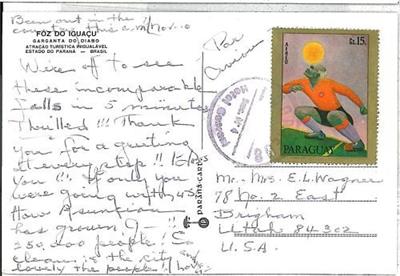 Been out in the
country this a.m. Nov-10
FOZ DO IGUAÇU
GARGANTA DO DIABO
ATRAÇÃO TURÍSTICA INIGUALÁVEL
ESTADO DO PARANÁ — BRASIL
We're off to see
these incomparable
falls in 5 minutes
Thrilled!!! Thank
you for a greeting
at every stop!!
you!!! If only you
were going with us
How Asuncion
has grown
250,000 people! So
clean is the city and
lovely the people!! Love
PARANÁ-CARD
Par
Avion
Hotel
AEREO
Gs.15.
PARAGUAY
Mr. Mrs. E.L. Wagner
78 No. 2 East
Brigham
Utah 84302
U.S.A.